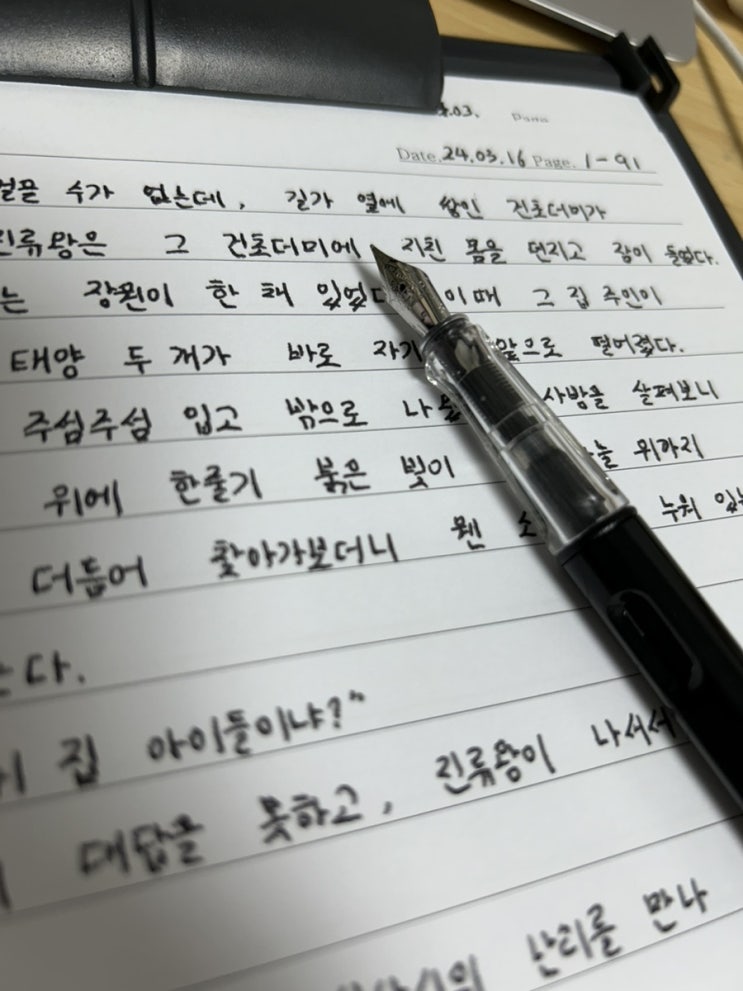 4.03.
Date. 24.03.16 Page. 1-91
수가 없는데, 길가 옆에 쌓인 건초더미가
진류왕은 그 건초더미에 지친 몸을 던지고 잠이 들었다.
는 장원이 한 채 있었다 이때 그 집 주인이
태양 두 개가 바로 자기 앞으로 떨어졌다.
주섬주섬 입고 밖으로 사방을 살펴보니
위에 한줄기 붉은 빛이 하늘 위까지
더듬어 찾아가보더니 웬 소 누워 있는
다.
집 아이들이냐?"
대답을 못하고, 진류왕이 나서서
난리를 만나